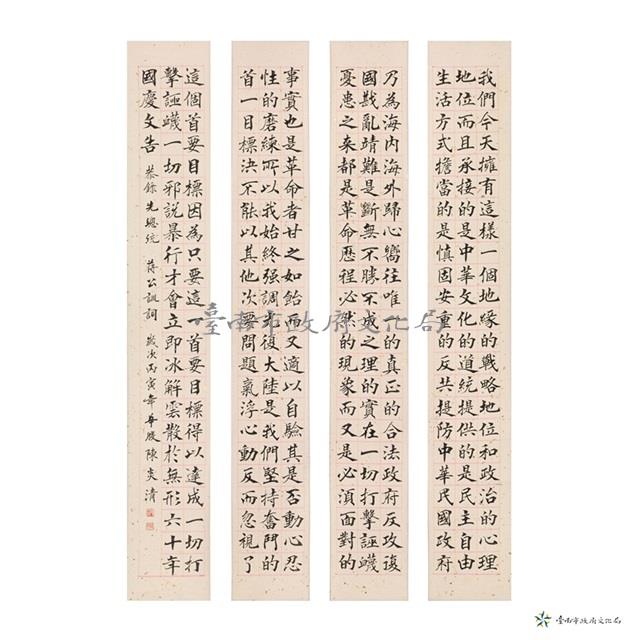 我們今天擁有這樣一個地緣的戰略地位和政治的心理
地位而且承接的是中華文化的道統提供的是民主自由
生活方式擔當的是慎固安重的反共堤防中華民國政府
乃為海內海外歸心嚮往唯一的真正的合法政府反攻復
國戡亂靖難是斷無不勝不成之理的實在一切打擊誣衊
憂患之来都是革命歷程必然的現象而又是必須面對的
事實也是革命者甘之如飴而又適以自驗其是否動心忍
性的磨練所以我始終强調光復大陸是我們堅持奮鬥的
首一目標決不能以其他次要問題氣浮心動反而忽視了
這個首要目標因為只要這一首要目標得以達成一切打
擊誣衊一切邪說暴行才會立即冰解雲散於無形六十年
國慶文告 恭錄先總統 蔣公訓詞 歲次丙寅年華 陳炎清
臺南市政府文化局
臺南市政府文化局